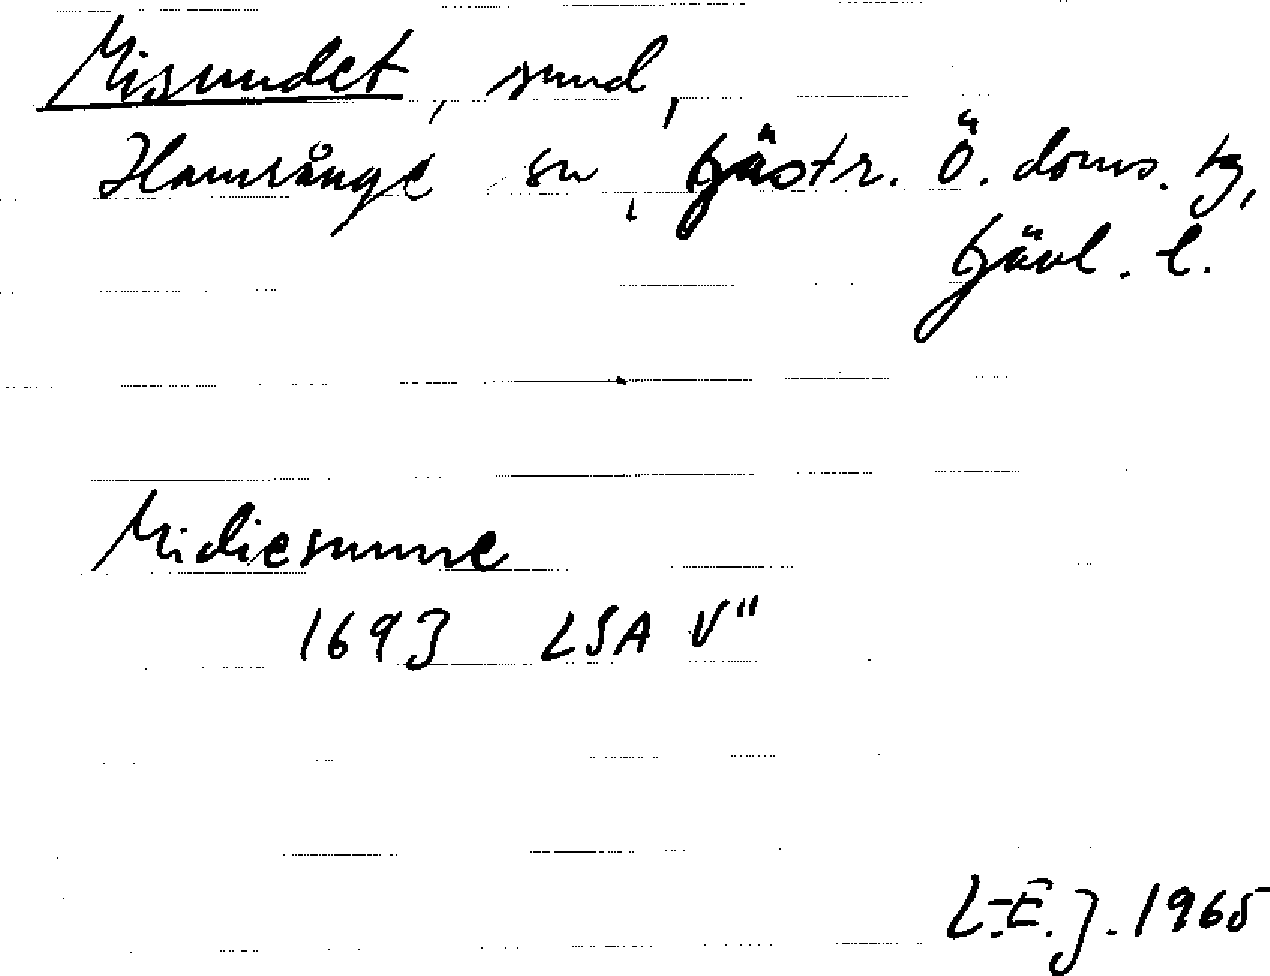 Misundet, sund,
Hamrånge sn, Gästr. Ö. doms. tg,
Gävl. l.
Midiesunne
1693 LSA V"
L.-E. J. 1965